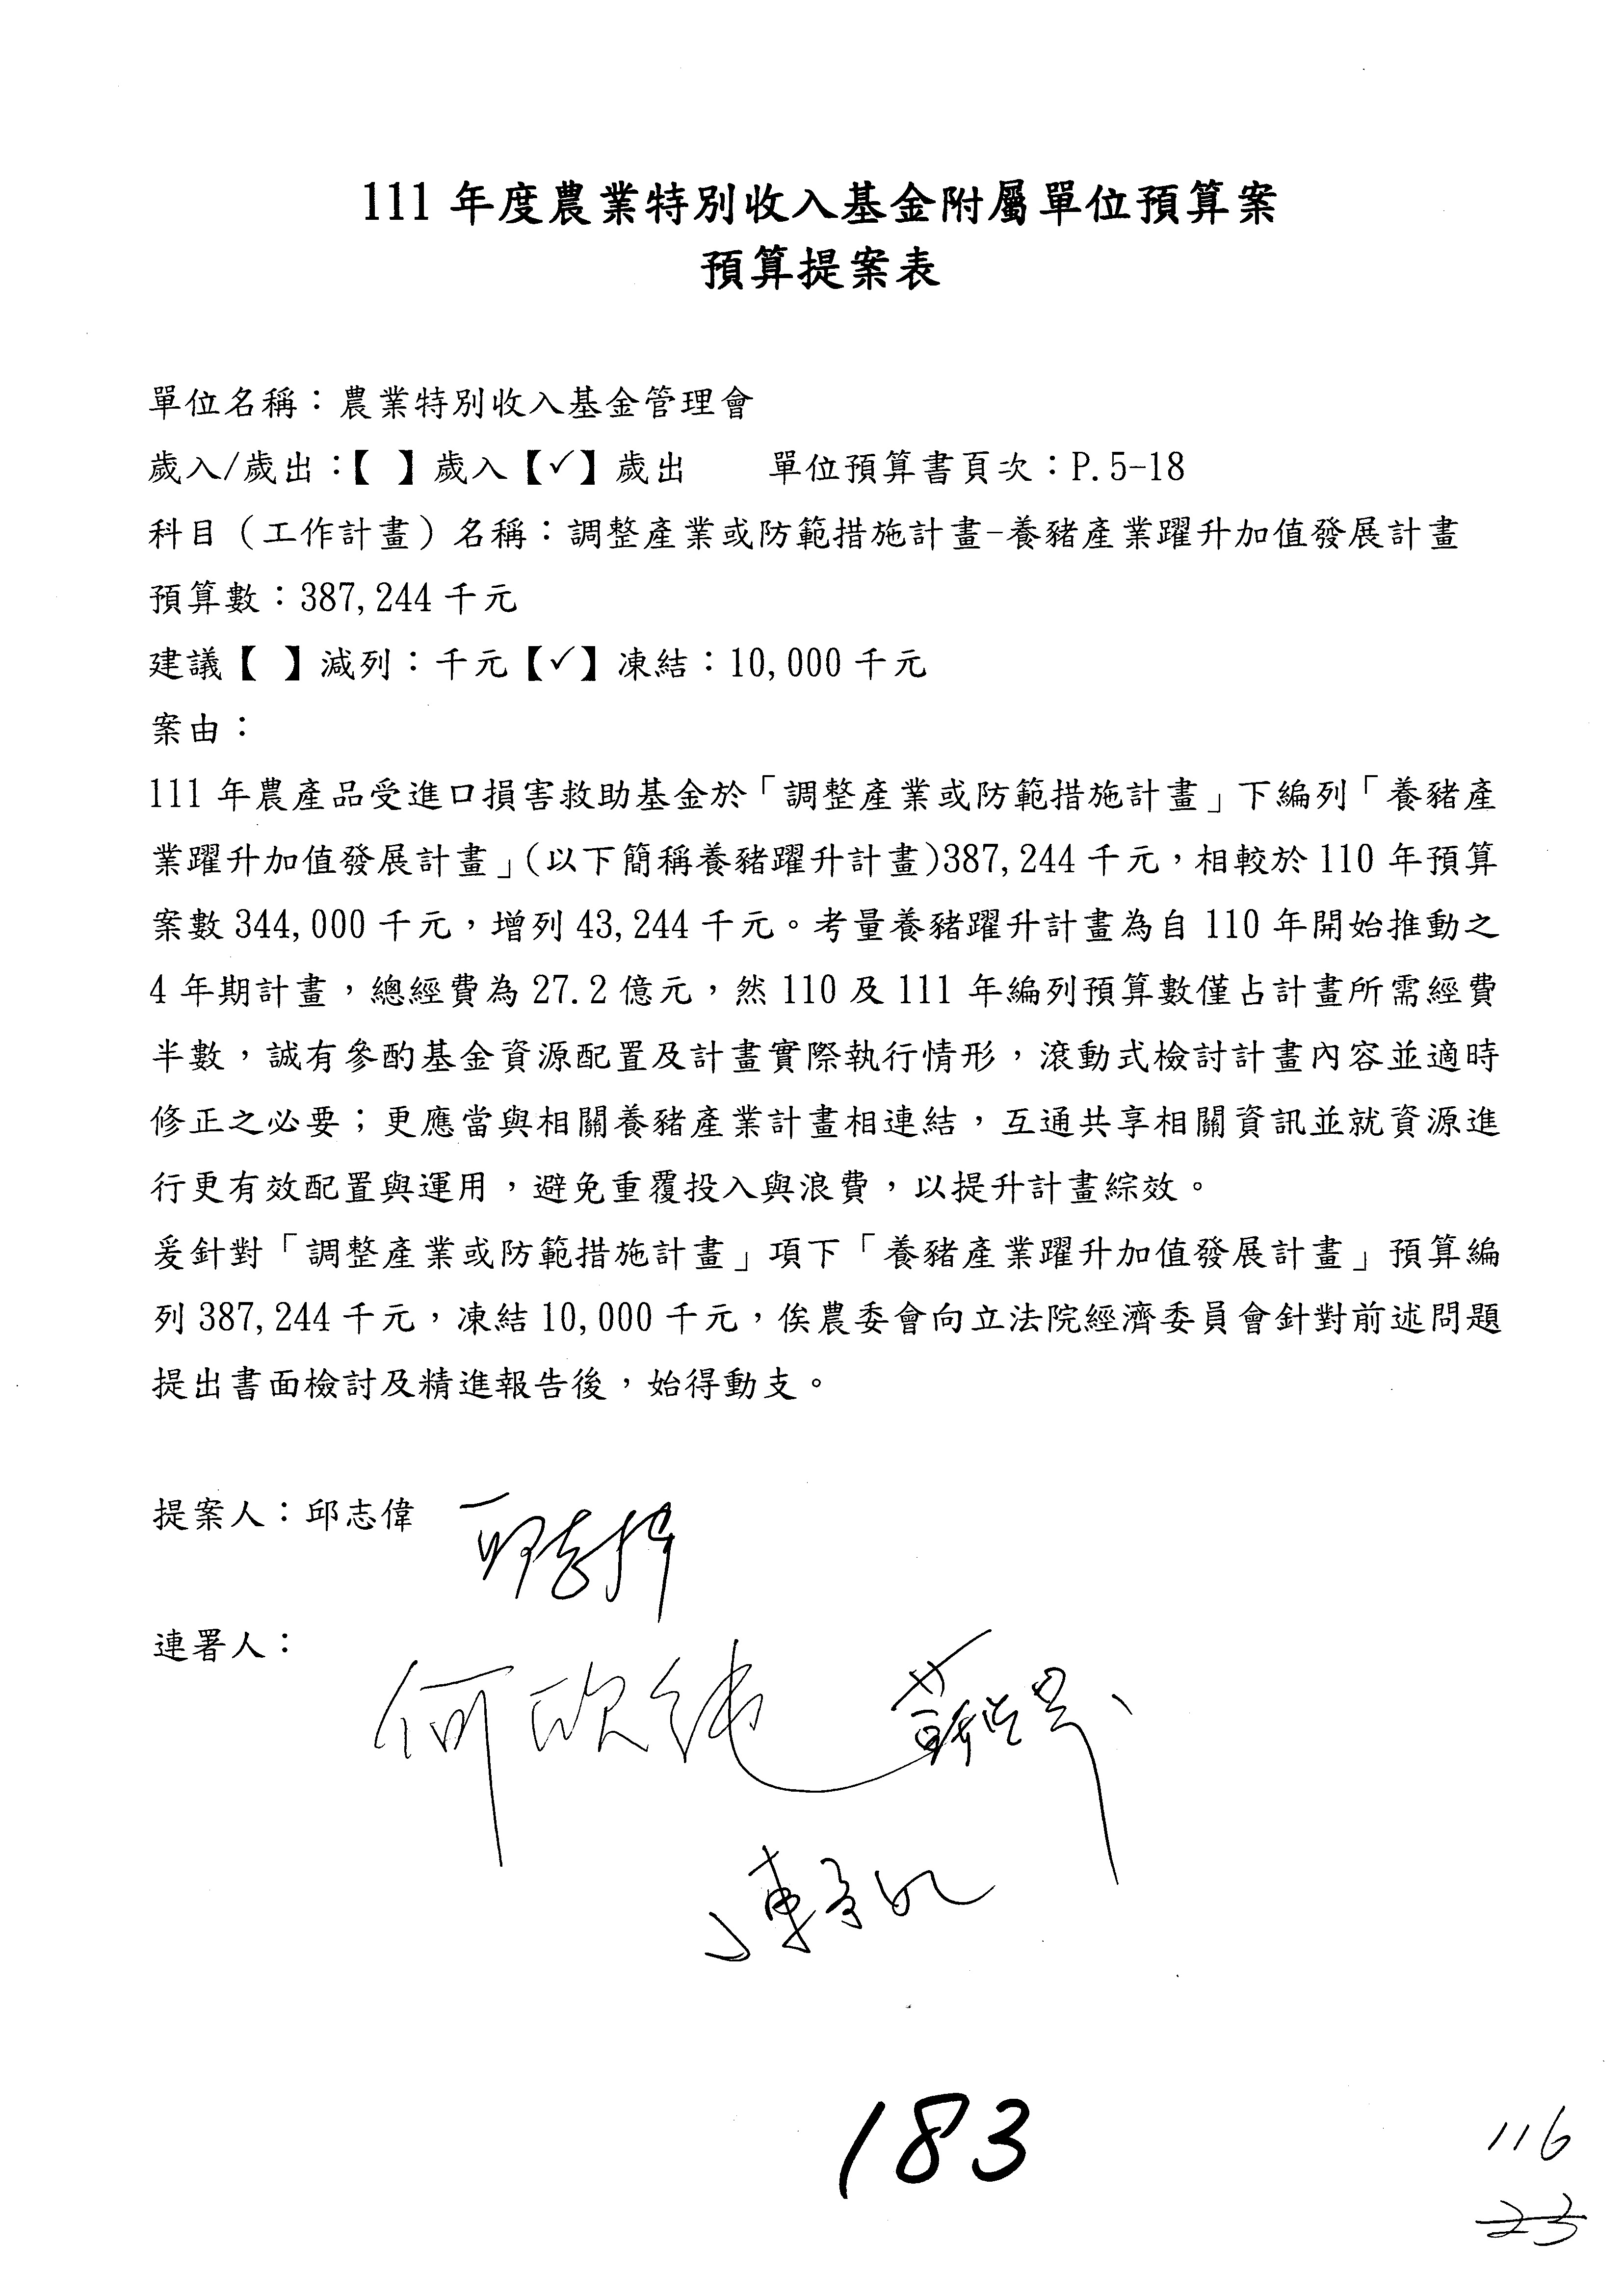 111 年度農業特別收入基金附屬單位預算案
預算提案表
單位名稱：農業特別收入基金管理會
歲入/歲出：【 】歲入【✓】歲出　　單位預算書頁次：P.5-18
科目（工作計畫）名稱：調整產業或防範措施計畫-養豬產業躍升加值發展計畫
預算數：387,244 千元
建議【 】減列：千元【✓】凍結：10,000 千元
案由：
111 年農產品受進口損害救助基金於「調整產業或防範措施計畫」下編列「養豬產
業躍升加值發展計畫」(以下簡稱養豬躍升計畫)387,244 千元，相較於 110 年預算
案數 344,000 千元，增列 43,244 千元。考量養豬躍升計畫為自 110 年開始推動之
4 年期計畫，總經費為 27.2 億元，然 110 及 111 年編列預算數僅占計畫所需經費
半數，誠有參酌基金資源配置及計畫實際執行情形，滾動式檢討計畫內容並適時
修正之必要；更應當與相關養豬產業計畫相連結，互通共享相關資訊並就資源進
行更有效配置與運用，避免重覆投入與浪費，以提升計畫綜效。
爰針對「調整產業或防範措施計畫」項下「養豬產業躍升加值發展計畫」預算編
列 387,244 千元，凍結 10,000 千元，俟農委會向立法院經濟委員會針對前述問題
提出書面檢討及精進報告後，始得動支。
提案人：邱志偉 邱志偉
連署人：
何欣純
183
116
23